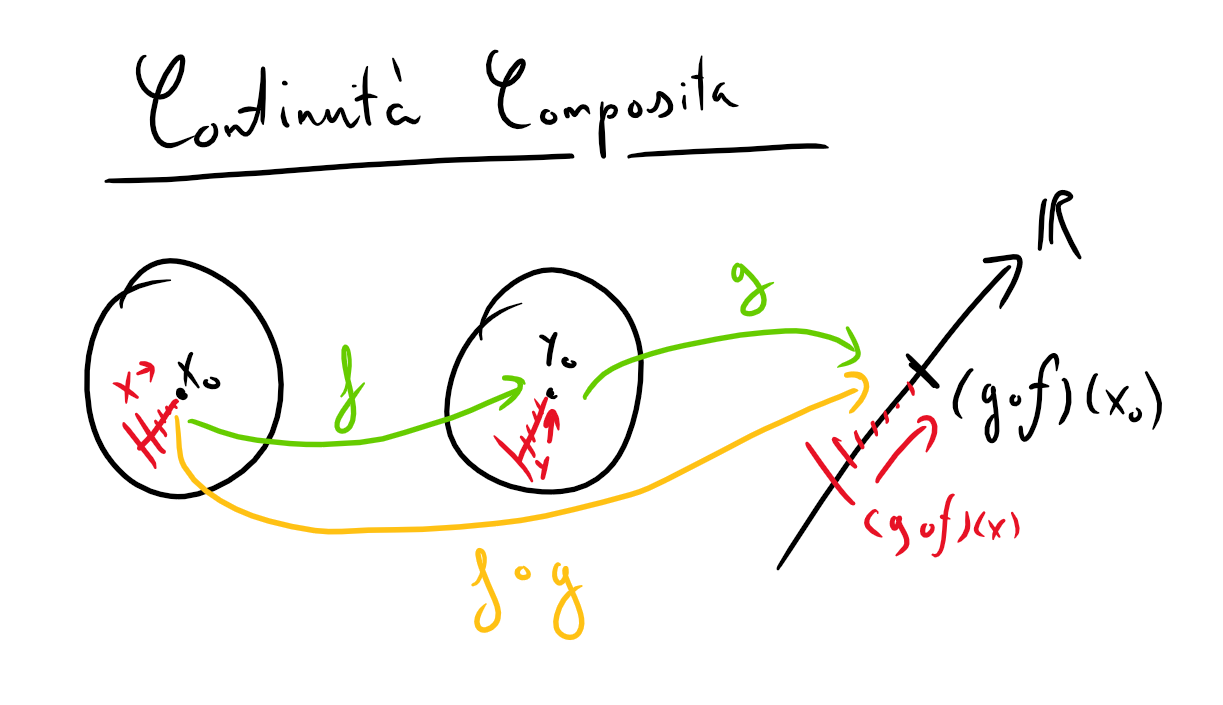 Continuità Composita
ℝ
g
f
x
x₀
y₀
y
(g∘f)(x₀)
(g∘f)(x)
f∘g